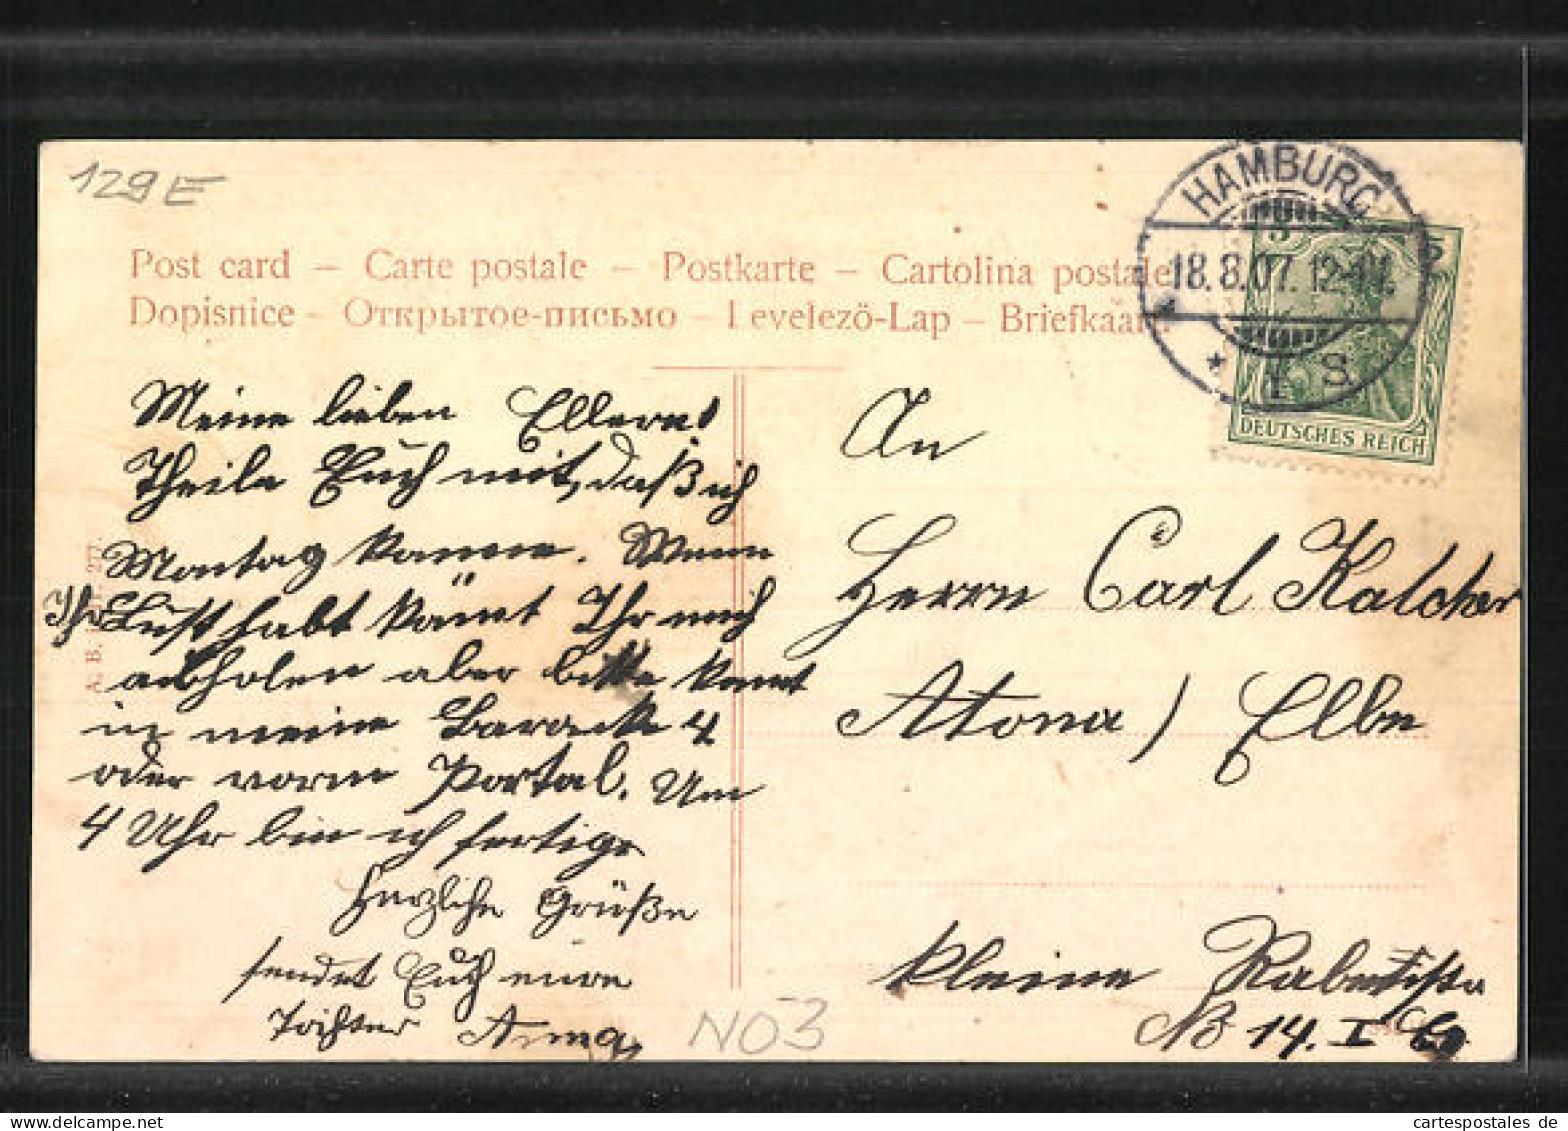 129E
Post card – Carte postale – Postkarte – Cartolina postale
Dopisnice – Открытое-письмо – Levelezö-Lap – Briefkaart
HAMBURG
18.8.07. 12-1N.
* 1 S.
5 5
DEUTSCHES REICH
Meine lieben Ellern!
Theile Euch mit, daß ich
Montag komme. Wenn
Ihr Lust habt könnt Ihr mich
abholen aber bitte kommt
in meine Barack 4
oder vorm Portal. Um
4 Uhr bin ich fertig.
Herzliche Grüße
sendet Euch eure
Tochter Anna
An
Herrn Carl Kalcher
Altona / Elbe
kleine
No 14. I
NO3
cartespostales de